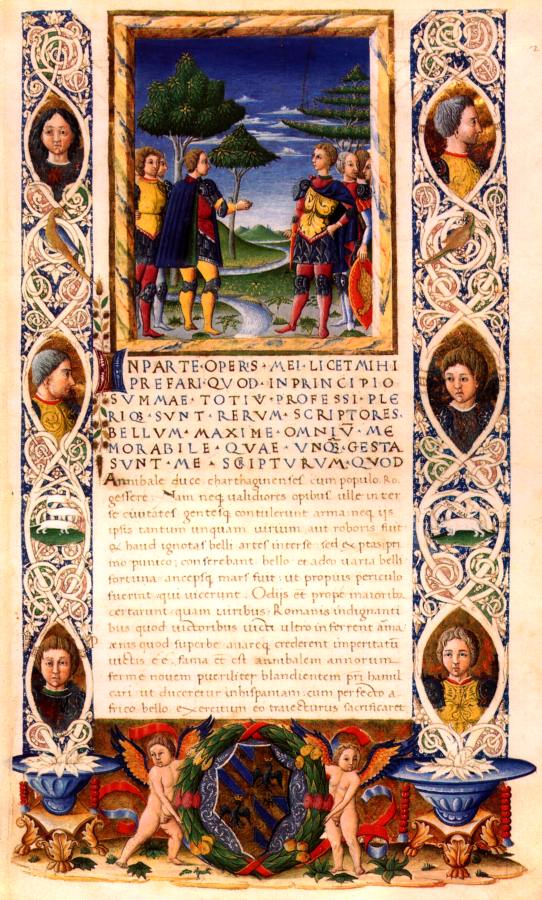 IN PARTE · OPERIS · MEI · LICET MIHI
PREFARI · QUOD · IN PRINCIPIO
SUMMAE · TOTIŪ · PROFESSI · PLE
RIQ3 · SUNT · RERUM · SCRIPTORES ·
BELLUM · MAXIME · OMNIŪ · ME
MORABILE · QUAE · UNQ3 · GESTA
SUNT · ME · SCRIPTURUM · QUOD
Annibale duce charthaginenses cum populo Ro
gessere. Nam neq ualidiores opibus ulle inter
se ciuitates gentesq contulerunt arma: neq iis
ipsis tantum unquam uirium aut roboris fuit
& haud ignotas belli artes inter se: sed exptas pri
mo punico; conserebant bello · et adeo uaria belli
fortuna ancepsq mars fuit: ut propius periculo
fuerint qui uicerunt. Odijs et prope maioribs
certarunt quam uiribus. Romanis indignanti
bus quod uictoribus uicti ultro inferrent arma
enis quod superbe auareq crederent imperitatū
uictis eē. fama et est annibalem annorum
ferme nouem pueriliter blandientem pri hamil
cari ut duceretur in hispaniam: cum perfecto a
frico bello exercitum eo traiecturus sacrificaret